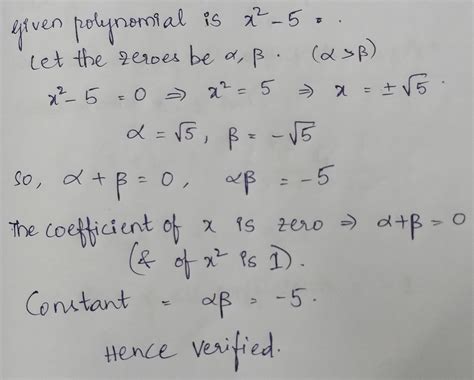 given polynomial is x² - 5 .
Let the zeroes be α, β . (α > β)
x² - 5 = 0 ⇒ x² = 5 ⇒ x = ± √5 .
α = √5 , β = - √5
so, α + β = 0 , αβ = -5
The coefficient of x is zero ⇒ α+β = 0
(& of x² is 1) .
Constant = αβ = -5 .
Hence verified.